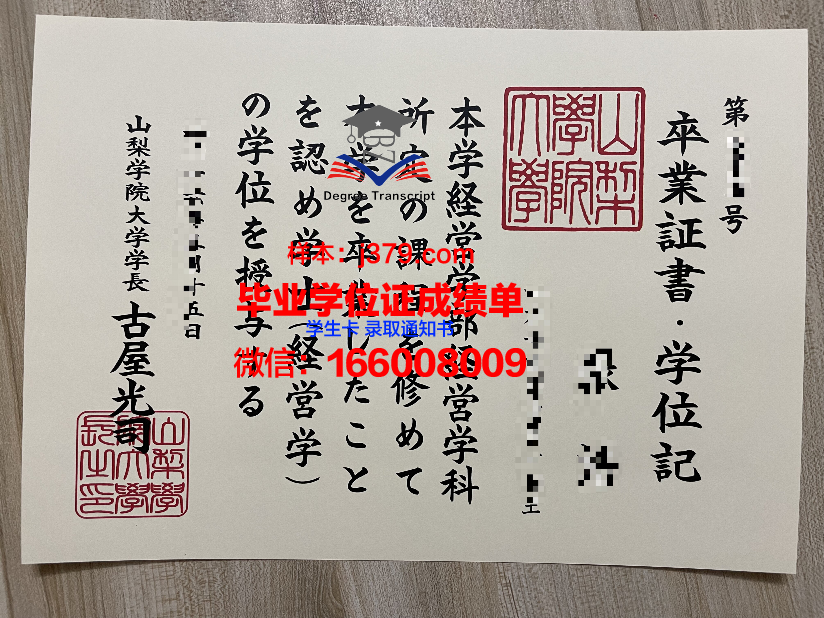 第
号
卒業証書・学位記
山梨
學院
大學
本学経営学部経営学科
所定の課程を修めて
本学を卒業したこと
を認め学士(経営学)
の学位を授与する
十五日
山梨学院大学学長
古屋光司
山梨學
院大學
長之印
Degree Transcript
样本:j379.com
毕业学位证成绩单
学生卡 录取通知书
微信:166008009